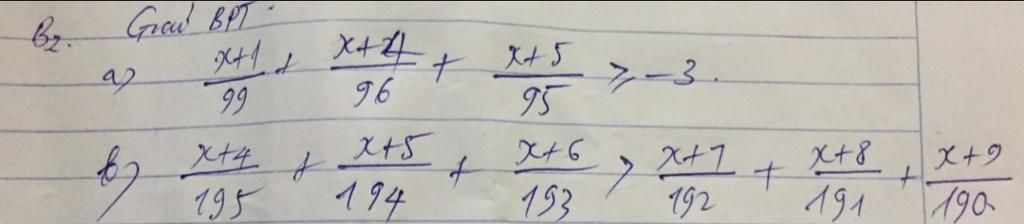 B2. Giải BPT.
a) \frac{x+1}{99} + \frac{x+4}{96} + \frac{x+5}{95} ≥ -3.
b) \frac{x+4}{195} + \frac{x+5}{194} + \frac{x+6}{193} > \frac{x+7}{192} + \frac{x+8}{191} + \frac{x+9}{190}